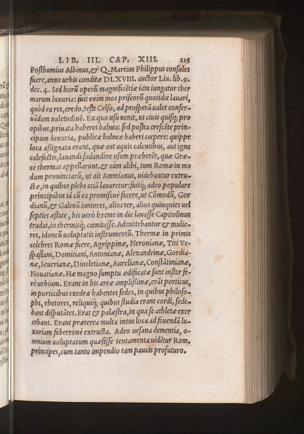 LIB. III. CAP. XIII. 215
Posthumius Albinus, & Q. Martius Philippus consules
fuere, anno urbis conditæ DLXVIII. auctor Liu. lib. 9.
dec. 4. Sed horū operū magnificētiæ iam iungatur ther
marum luxuria: fuit enim mos priscorū quotidie lauari,
quòd ea res, credo, teste Celso, ad prosperā ualet conser-
uādam ualetudinē. Ex quo usu uenit, ut ciuis quisq; pro
opibus, priuata haberet balnea: sed postea crescēte prin-
cipum luxuria, publica balnea haberi cœpere: quippe
loca assignata erant, quæ aut aquis calentibus, aut igne
calefactis, lauandi sudandiue usum præberēt, quæ Græ-
ce thermas appellarunt, & cùm alibi, tum Romæ in mo
dum prouinciarū, ut ait Ammianus, uidebantur extru-
ctæ, in quibus plebs etiā lauaretur: fuitq; adeo populare
principibus id cū ea promiscue facere, ut Cōmodū, Gor
dianū, & Galenū iuniores, alios ter, alios quinquies uel
septies æstate, bis uerò hyeme in die lauasse Capitolinus
tradat, in thermisq; cœnitasse. Admittebantur & mulie-
res, idoneū uoluptatis instrumentū. Thermæ in primis
celebres Romæ fuere, Agrippinæ, Neronianæ, Titi Ve-
spasiani, Domitiani, Antonianæ, Alexandrinæ, Gordia-
næ, Seuerianæ, Diocletianæ, Aurelianæ, Constātinianæ,
Nouatianæ. Hæ magno sumptu ædificatæ sunt instar fe-
rè urbium. Erant in his areæ amplissimæ, erāt porticus,
in porticibus exedræ habentes sedes, in quibus philoso-
phi, rhetores, reliquiq; quibus studia erant cordi, sede-
bant disputātes. Erat & palæstra, in qua se athletæ exer
cebant. Erant præterea multa intus loca ad fiuendā lu-
xuriam ſuberrimè extructa. Adeo uesana dementia, o-
mnium uoluptatum quæsisse tentamenta uidētur Rom.
principes, cum tanto impendio tam paucis profuturo.